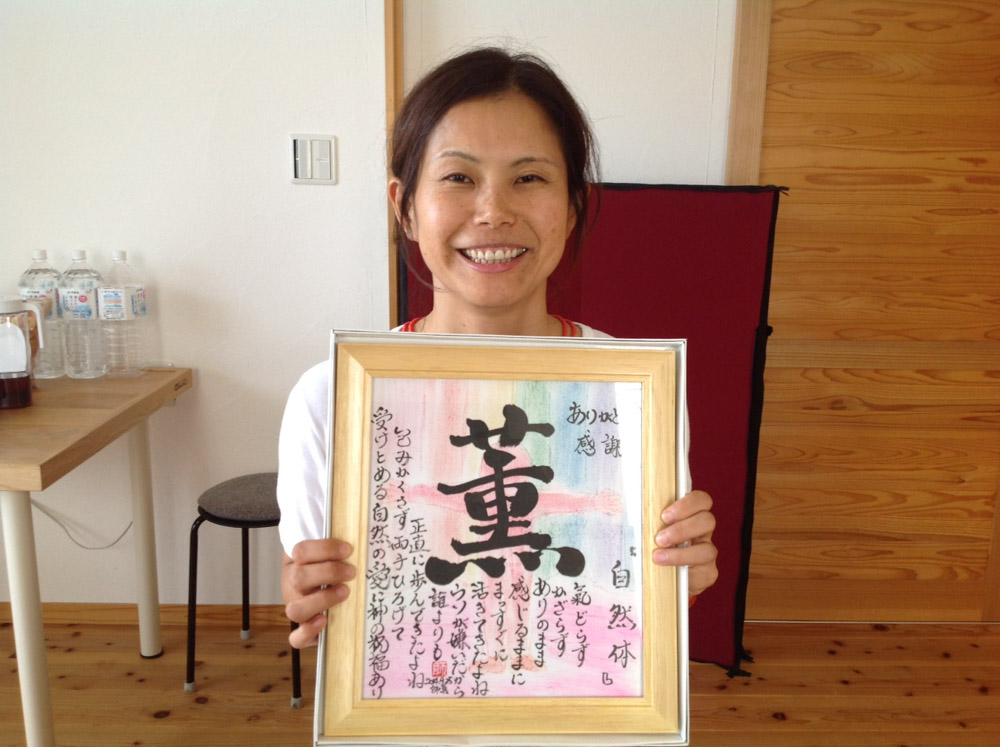 ありがと
感謝
薫
「自然体」
氣どらず
かざらず
ありのまま
感じるままに
まっすぐに
活きてきたよね
ウソが嫌いだから
誰よりも
正直に歩んできたよね
包みかくさず両手ひろげて
受けとめる自然の愛に神の祝福あり